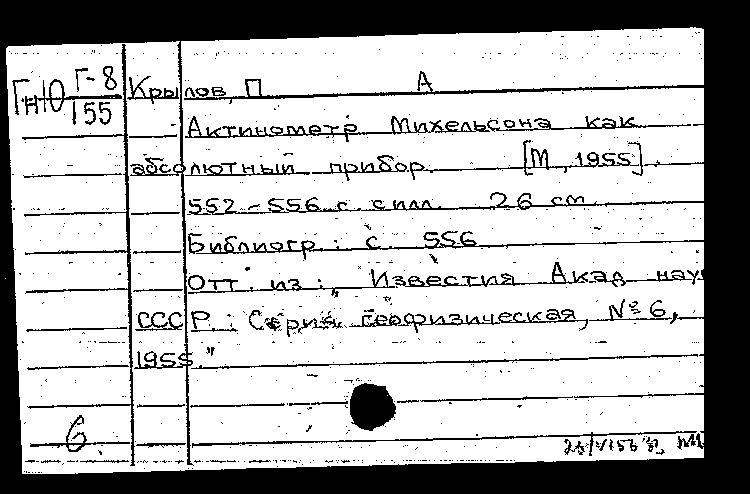 Гн10 Г-8
155
Крылов, П А
Актинометр Михельсона как
абсолютный прибор. [М, 1955].
552-556 с. с илл. 26 см
Библиогр: с. 556
Отт. из: "Известия Акад нау
СССР. Серия геофизическая, № 6,
1955."
6.